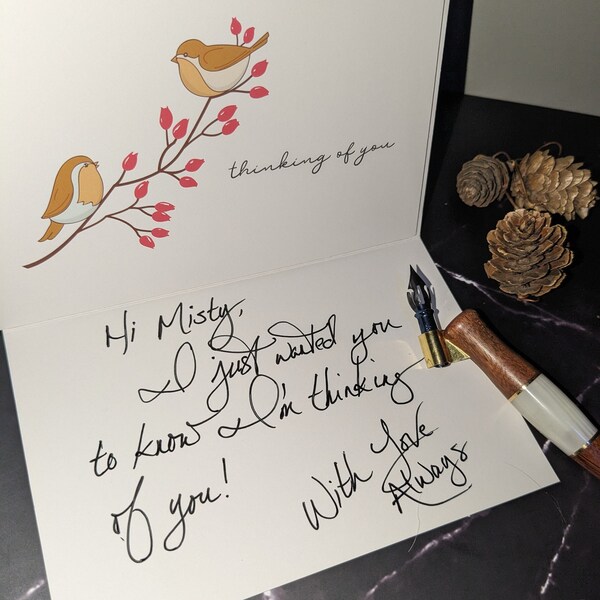 thinking of you
Hi Misty,
I just wanted you
to know I'm thinking
of you!
With Love
Always